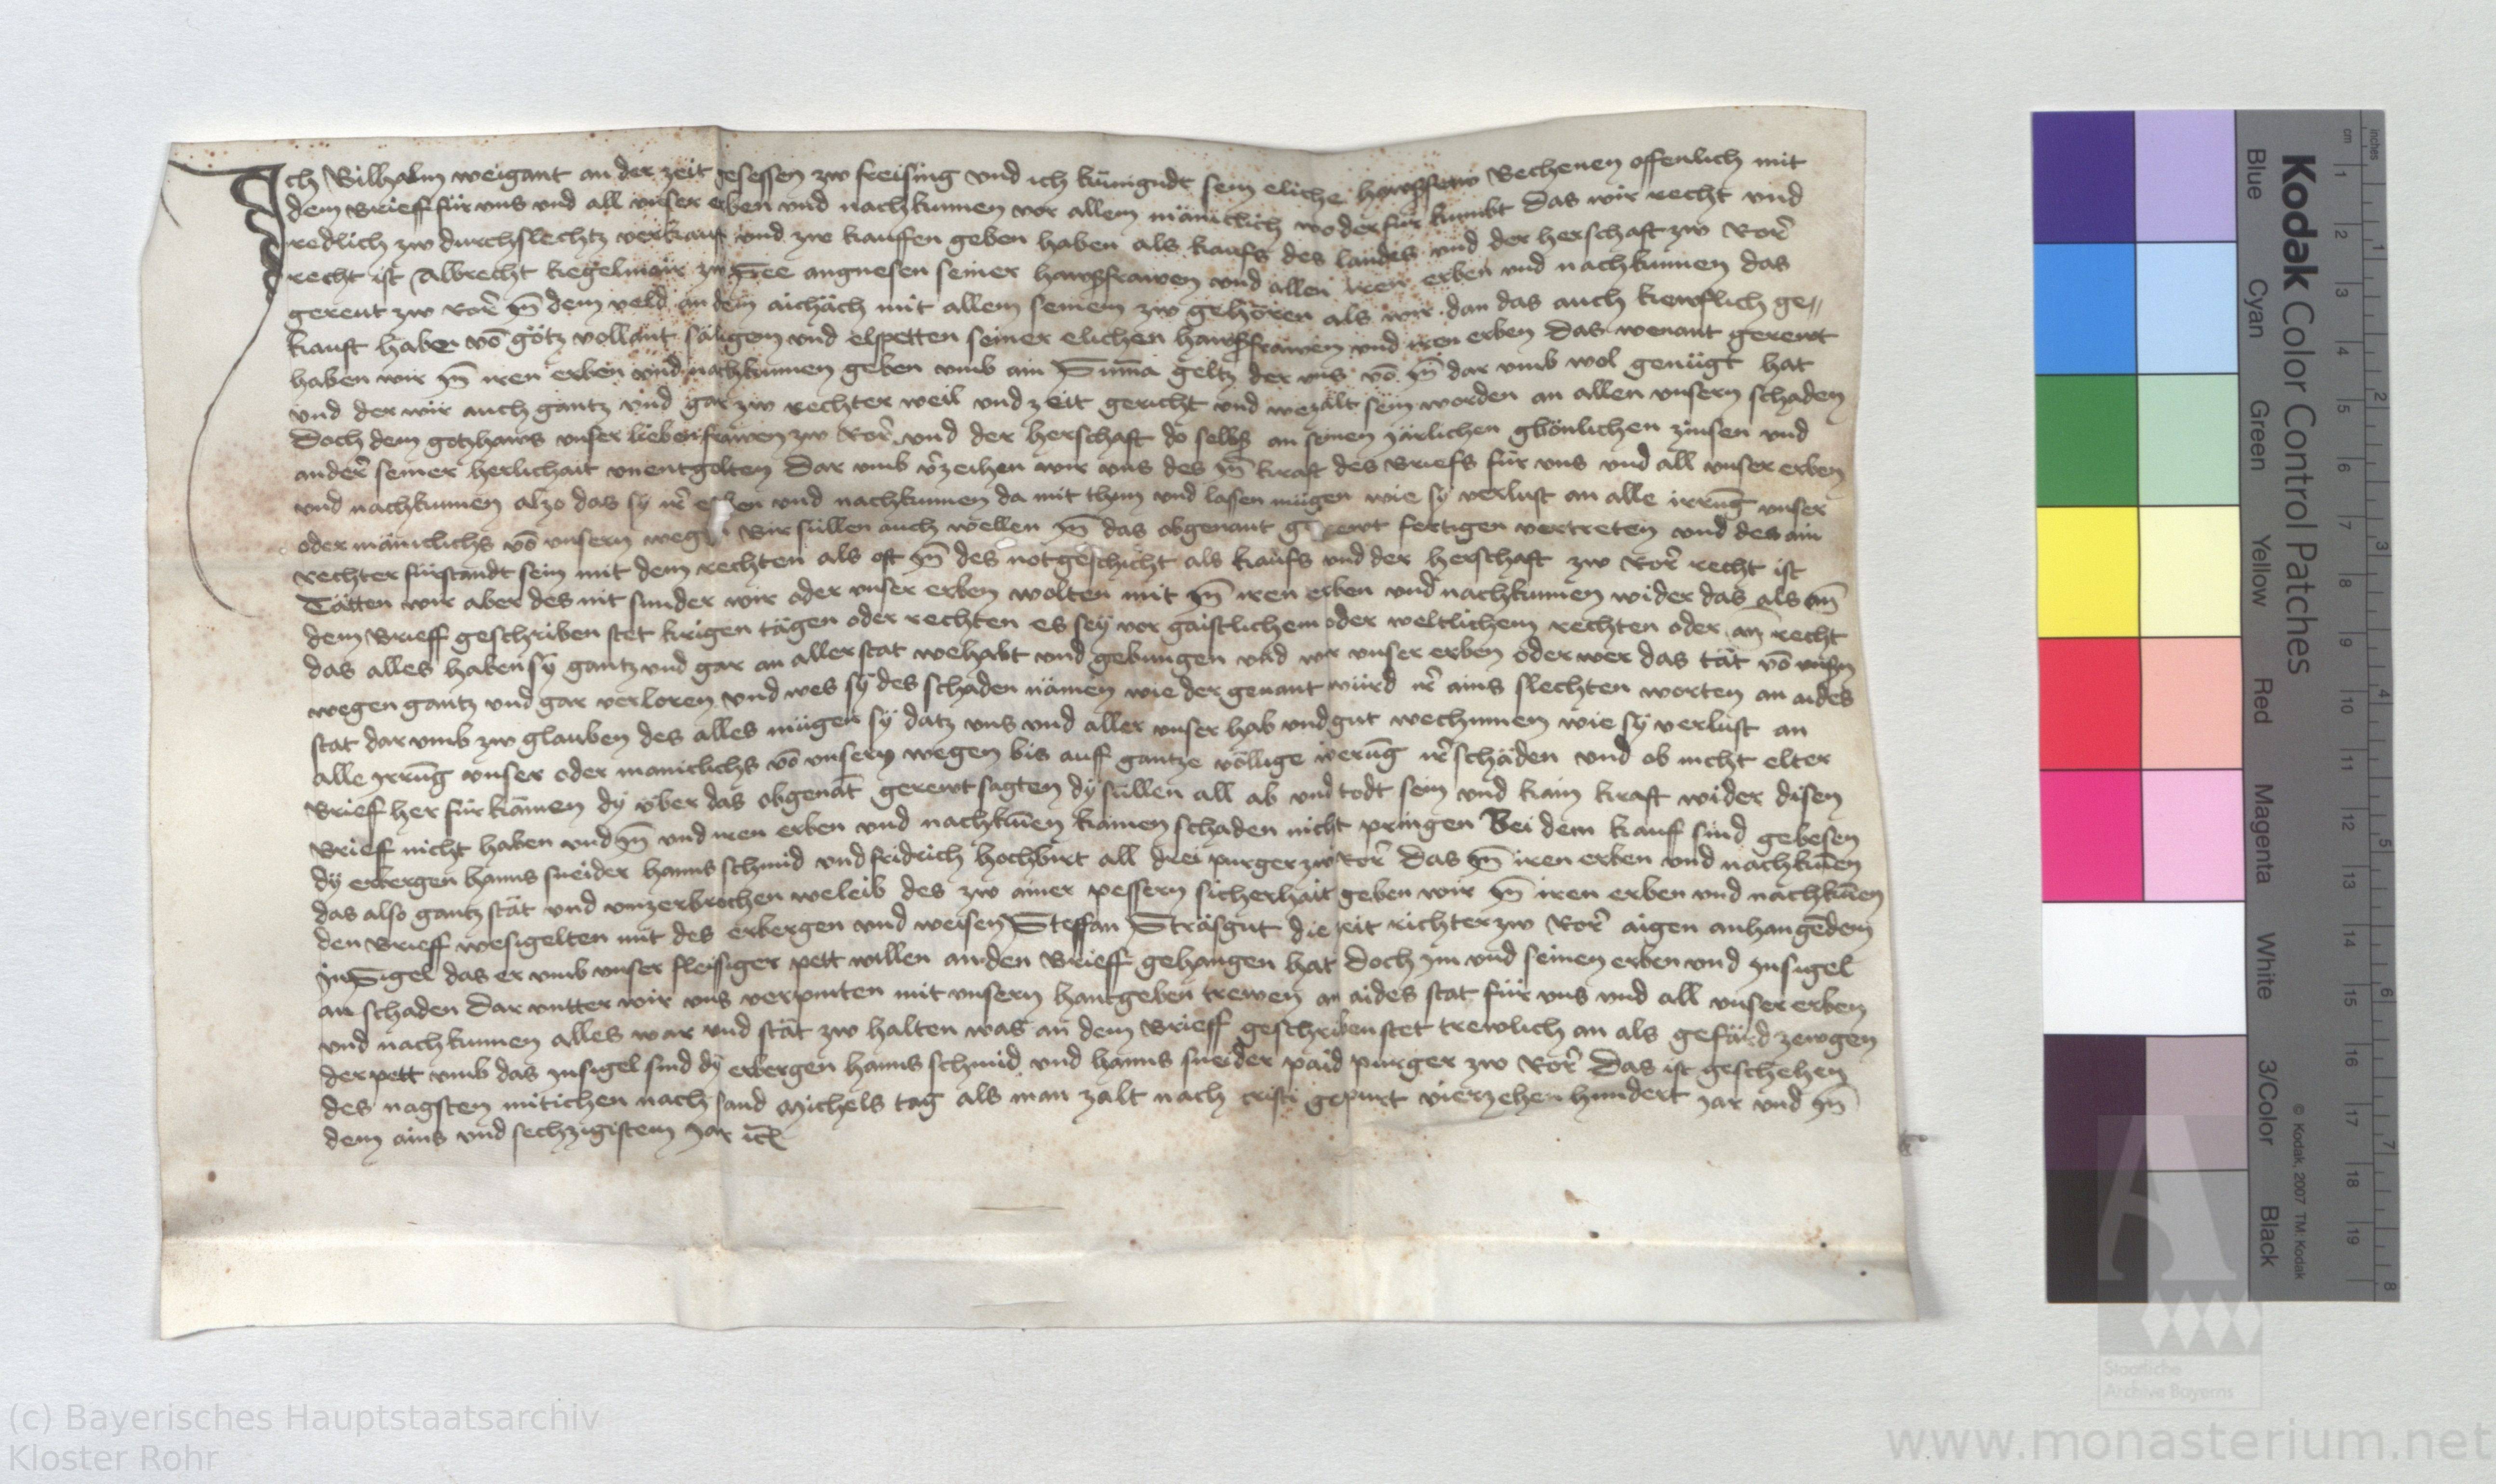 Ich Wilhalm weigant an der zeit gesessen zw freising vnd ich kunigndt sein eliche hawsfraw Bechenen offenlich mit
dem Brieff für vns vnd all vnser erben vnd nachkumen vor allem mänicklich wo der für kumbt Das wir recht vnd
redlich zw durchslechtz verkauft vnd zw kauffen geben haben als kaufs des landes vnd der herschaft zw Ror̄
recht ist Albrecht kegelmair zw angnesen seiner hawsfrawen vnd allen iren erben vnd nachkumen das
gerent zw Ror̄ yn̄ dem veld an dem aichäch mit allem seinem zw gehören als wir dan das auch kewflich ge//
kauft haben vō götz vollant säligen vnd elspetten seiner elichen hawsfrawen vnd iren erben Das wenant gerewt
haben wir yn̄ iren erben vnd nachkumen geben vmb ain Sum̄a geltz der vns vō yn̄ dar vmb wol genügt hat
vnd der wir auch gantz vnd gar zw rechter weil vnd zeit gericht vnd wezalt sein worden an allen vnsern schaden
Doch dem gotzhaws vnser lieben frawen zw Ror̄ vnd der herschaft do selbs an seinen järlichen gbönlichen zinsen vnd
ander̄ seiner herlichait vnentgolten Dar vmb v̄zeihen wir vns des yn̄ kraft des Briefs für vns vnd all vnser erben
vnd nachkumen alzo das sy ir̄ erben vnd nachkumen da mit thun vnd lassen mügen wie sy verlust an alle irrūg vnser
oder mänicklichs vō vnsern wegen Wir süllen auch wellen yn̄ das obgenant gerewt fertigen vertreten vnd des ain
rechter fürstandt sein mit dem rechten als oft yn̄ des not geschicht als kaufs vnd der herschaft zw Ror̄ recht ist
Tätten wir aber des nit sunder wir oder vnser erben wolten mit yn̄ iren erben vnd nachkumen wider das als an̄
dem Brieff geschriben stet krigen tägen oder rechten es sey vor gaistlichem oder weltlichem rechten oder an recht
das alles haben sy gantz vnd gar an aller stat wehabt vnd gebungen vnd wir vnser erben oder wer das tät vō vnsern
wegen gantz vnd gar verloren vnd wes sy des schaden nämen wie der genant würd ir̄ ains slechten worten an aides
stat dar vmb zw glauben des alles mügen sy datz vns vnd aller vnser hab vnd gut wechumen wie sy verlust an
alle yrrūg vnser oder manicklichs vō vnsern wegen bis auff gantze völlige werūg ir̄ schäden vnd ob nicht elter
Brieff her für kämen dy vber das obgenāt gerewt sagten dy süllen all ab vnd todt sein vnd kain kraft wider disen
Brieff nicht haben vnd yn̄ vnd iren erben vnd nachkum̄en kainen schaden nicht pringen Bei dem kauf sind gebesen
dy erbergen hanns sneider hanns schmid vnd fridrich hochbirt all drei purger zw Ror̄ Das yn̄ iren erben vnd nachkum̄en
das also gantz stät vnd vnzerbrochen weleib des zw ainer pessern sicherhait geben wir yn̄ iren erben vnd nachkūen
den Brieff wesigelten mit des erbergen vnd weisen Steffan Sträsgut die zeit richter zw Ror̄ aigen anhangēdem
inSigel das er vmb vnser fleissiger pett willen an den Brieff gehangen hat doch ym vnd seinen erben vnd ynsigel
an schaden Dar vntter wir vns verpinten mit vnsern hantgeben trewen an aides stat für vns vnd all vnser erben
vnd nachkumen alles war vnd stät zw halten was an dem Brieff geschriben stet trewlich an als gefärd zewgen
der pett vmb das ynsigel sind dy erbergen hanns schmid vnd hanns sneider paid purger zw Ror̄ Das ist geschehen
des nagsten mitichen nach sand Michels tag als man zalt nach cristi gepurt vierzehen hundert yar vnd yn̄
dem ains vnd sechzigistem yar
Kodak Color Control Patches
Blue Cyan Green Yellow Red Magenta White 3/Color Black
© Kodak, 2007 TM: Kodak
cm 1 2 3 4 5 6 7 8 9 10 11 12 13 14 15 16 17 18 19
inches 1 2 3 4 5 6 7 8
Staatliche
Archive Bayerns
(c) Bayerisches Hauptstaatsarchiv
Kloster Rohr
www.monasterium.net